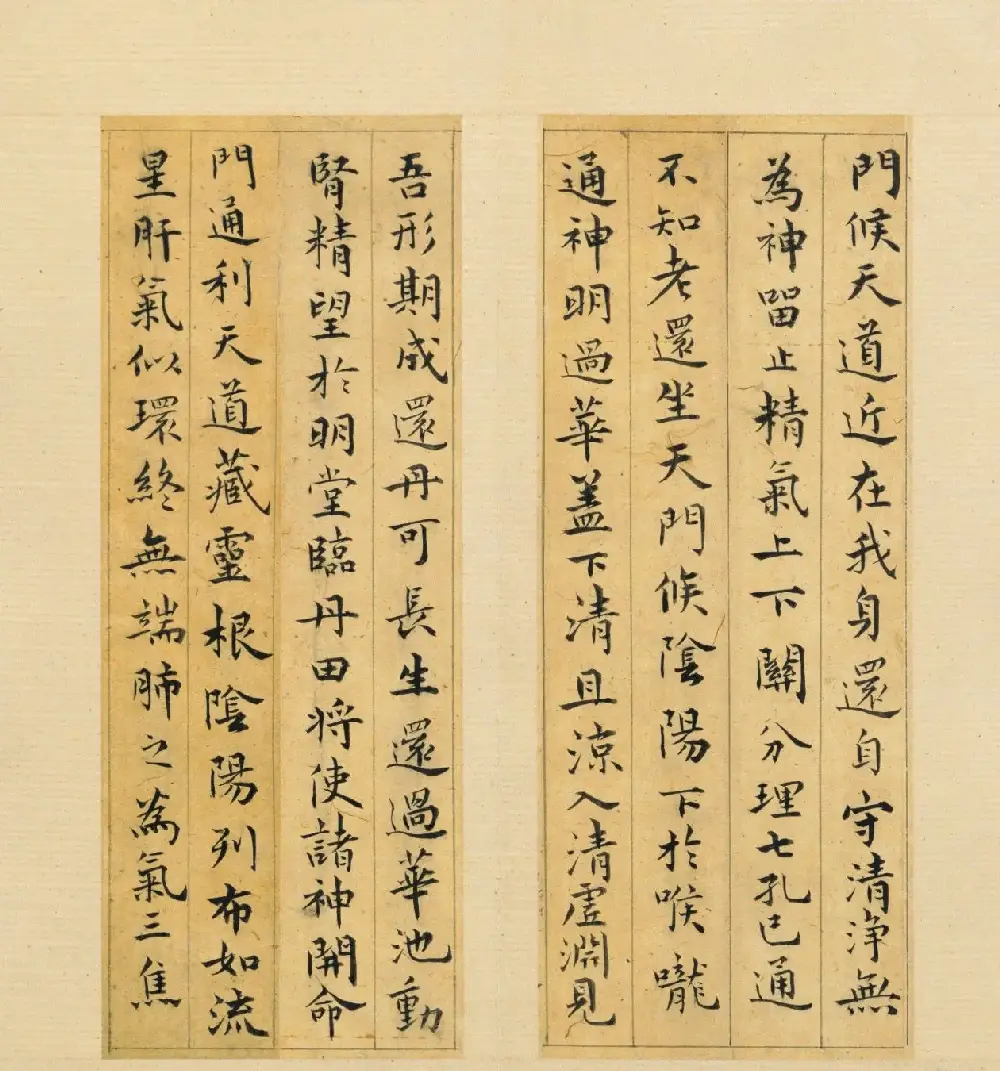 門候天道近在我身還自守清淨無
為神留止精氣上下關分理七孔已通
不知老還坐天門候陰陽下於喉嚨
通神明過華蓋下清且涼入清虛淵見
吾形期成還丹可長生還過華池動
腎精望於明堂臨丹田将使諸神開命
門通利天道藏靈根陰陽列布如流
星肝氣似環終無端肺之為氣三焦